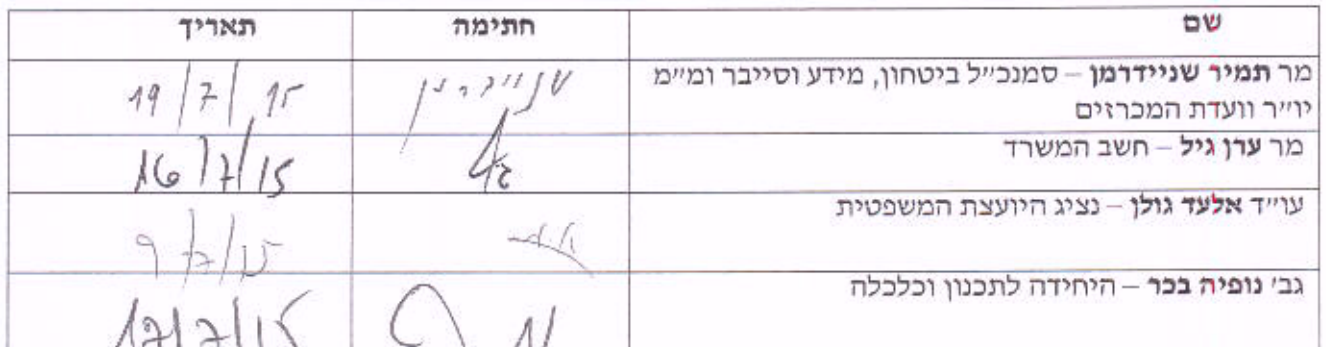 שם חתימה תאריך
מר תמיר שניידרמן – סמנכ״ל ביטחון, מידע וסייבר ומ״מ
יו״ר וועדת המכרזים
שניידרמן 19/7/15
מר ערן גיל – חשב המשרד
16/7/15
עו״ד אלעד גולן – נציג היועצת המשפטית
9/7/15
גב׳ נופיה בכר – היחידה לתכנון וכלכלה
12/7/15